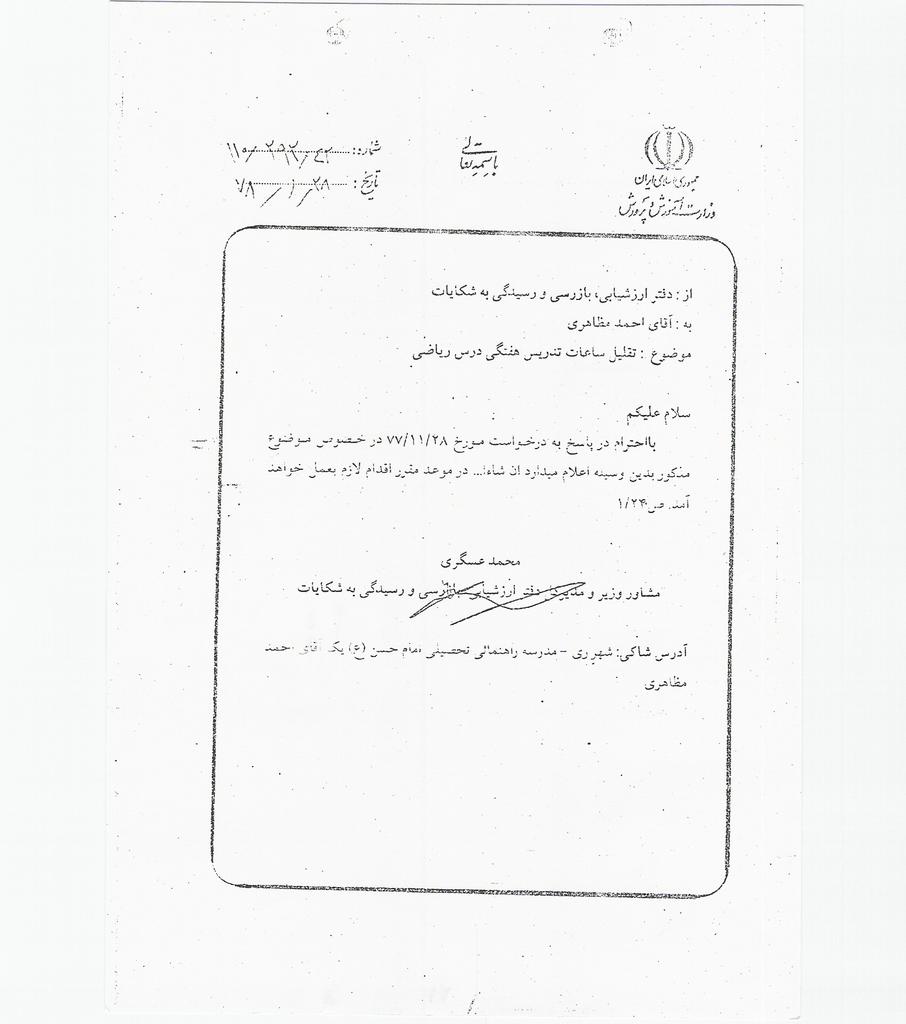 باسمه تعالی
جمهوری اسلامی ایران
وزارت آموزش و پرورش
شماره:
تاریخ: ۷۸/۱/۲۸
از : دفتر ارزشیابی، بازرسی و رسیدگی به شکایات
به : آقای احمد مظاهری
موضوع : تقلیل ساعات تدریس هفتگی درس ریاضی
سلام علیکم
بااحترام در پاسخ به درخواست مورخ ۷۷/۱۱/۲۸ در خصوص موضوع
مذکور بدین وسیله اعلام میدارد ان شاءا... در موعد مقرر اقدام لازم بعمل خواهد
آمد. ص۱/۲۴
محمد عسگری
مشاور وزیر و مدیرکل دفتر ارزشیابی، بازرسی و رسیدگی به شکایات
آدرس شاکی: شهرری - مدرسه راهنمائی تحصیلی امام حسن (ع) یک آقای احمد
مظاهری